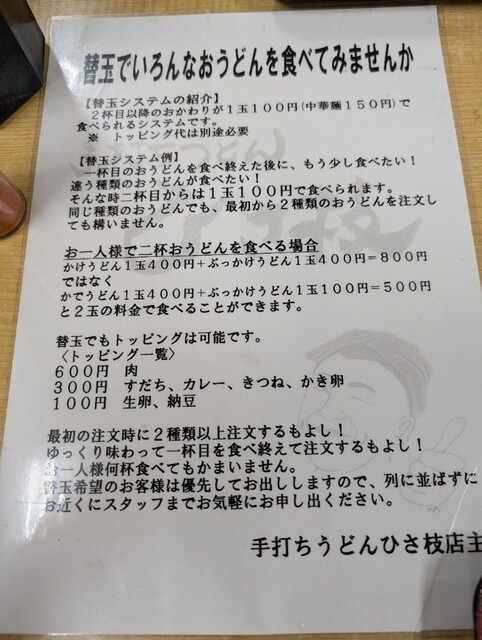 替玉でいろんなおうどんを食べてみませんか
【替玉システムの紹介】
2杯目以降のおかわりが1玉100円(中華麺150円)で
食べられるシステムです。
※ トッピング代は別途必要
【替玉システム例】
一杯目のおうどんを食べ終えた後に、もう少し食べたい！
違う種類のおうどんが食べたい！
そんな時二杯目からは1玉100円で食べられます。
同じ種類のおうどんでも、最初から2種類のおうどんを注文し
ても構いません。
お一人様で二杯おうどんを食べる場合
かけうどん1玉400円+ぶっかけうどん1玉400円=800円
ではなく
かでうどん1玉400円+ぶっかけうどん1玉100円=500円
と2玉の料金で食べることができます。
替玉でもトッピングは可能です。
〈トッピング一覧〉
600円 肉
300円 すだち、カレー、きつね、かき卵
100円 生卵、納豆
最初の注文時に2種類以上注文するもよし！
ゆっくり味わって一杯目を食べ終えて注文するもよし！
お一人様何杯食べてもかまいません。
替玉希望のお客様は優先してお出ししますので、列に並ばずに
お近くにスタッフまでお気軽にお申し出ください。
手打ちうどんひさ枝店主